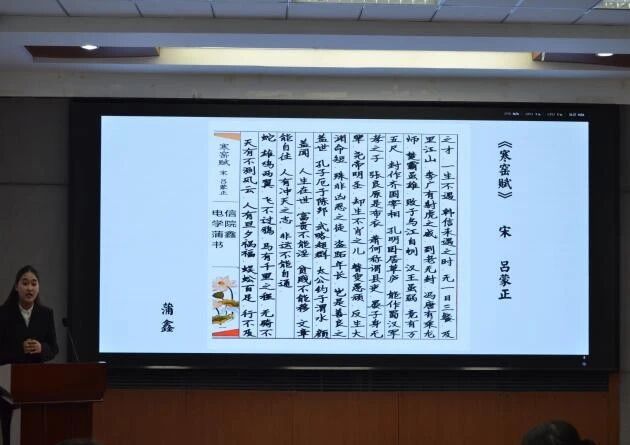 《寒窑赋》 宋 吕蒙正
寒窑赋 宋 吕蒙正
电信学院蒲鑫书
天有不测风云 人有旦夕祸福 蜈蚣百足 行不及
蛇 雄鸡两翼 飞不过鸦 马有千里之程 无骑不
能自往 人有冲天之志 非运不能自通
盖闻 人生在世 富贵不能淫 贫贱不能移 文章
盖世 孔子厄于陈邦 武略超群 太公钓于渭水 颜
渊命短 殊非凶恶之徒 盗跖年长 岂是善良之
辈 尧帝明圣 却生不肖之儿 瞽叟愚顽 反生大
孝之子 张良原是布衣 萧何称谓县吏 晏子身无
五尺 封作齐国宰相 孔明卧居草庐 能作蜀汉军
师 楚霸英雄 败于乌江自刎 汉王虽弱 竟有万
里江山 李广有射虎之威 到老无封 冯唐有乘龙
之才 一生不遇 韩信未遇之时 无一日三餐 及
蒲鑫